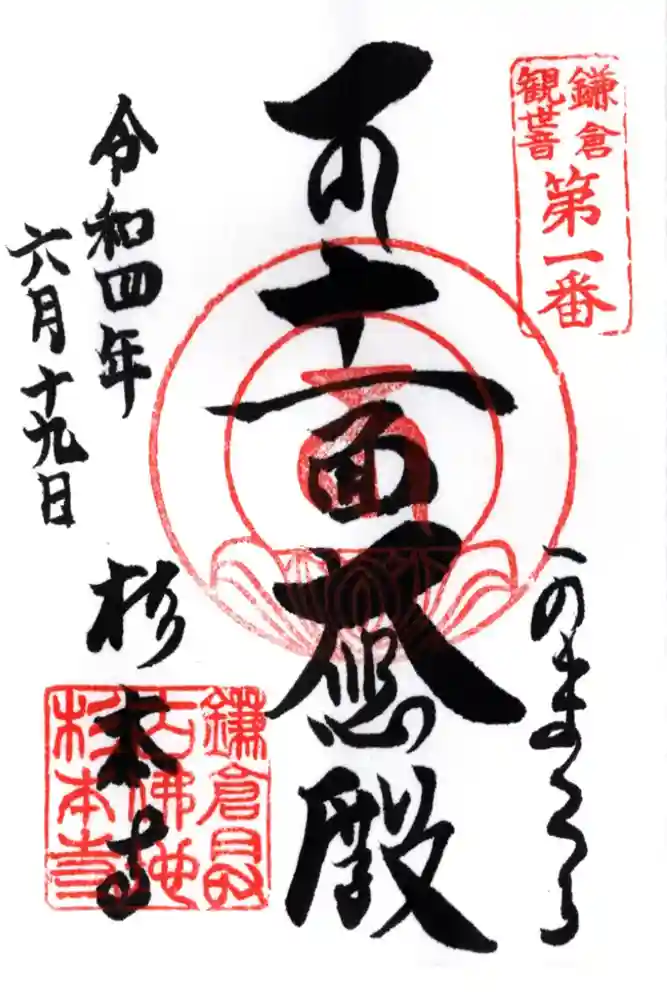 鎌倉
観世音
第一番
十一面大悲殿
令和四年
六月十九日
杉本寺
鎌倉最
古佛地
杉本寺